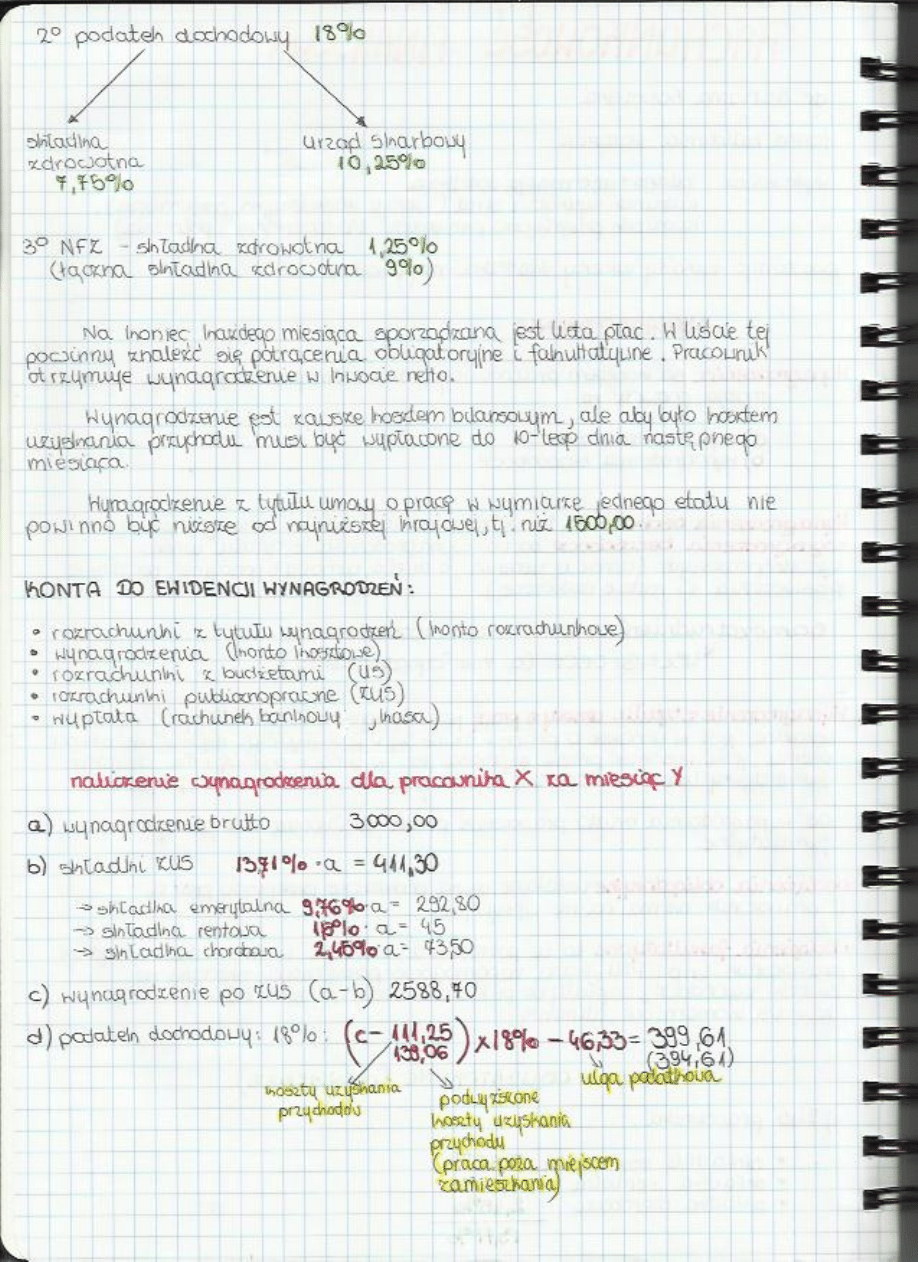 2° podatek dochodowy 18%
składka
zdrowotna
7,75%
urząd skarbowy
10,25%
3° NFZ - składka zdrowotna 1,25%
(łączna składka zdrowotna 9%)
Na koniec każdego miesiąca sporządzana jest lista płac. W liście tej
powinny znaleźć się potrącenia obligatoryjne i fakultatywne. Pracownik
otrzymuje wynagrodzenie w kwocie netto.
Wynagrodzenie est zawsze kosztem bilansowym, ale aby było kosztem
uzyskania przychodu musi być wypłacone do 10-tego dnia następnego
miesiąca.
Wynagrodzenie z tytułu umowy o pracę w wymiarze jednego etatu nie
powinno być niższe od najniższej krajowej, tj. niż 1500,00
KONTA DO EWIDENCJI WYNAGRODZEŃ:
• rozrachunki z tytułu wynagrodzeń (konto rozrachunkowe)
• wynagrodzenia (konto kosztowe)
• rozrachunki z budżetami (US)
• rozrachunki publicznoprawne (ZUS)
• wypłata (rachunek bankowy, kasa)
naliczenie wynagrodzenia dla pracownika X za miesiąc Y
a) wynagrodzenie brutto 3000,00
b) składki ZUS 13,71% · a = 411,30
→ składka emerytalna 9,76% · a = 292,80
→ składka rentowa 1,5% · a = 45
→ składka chorobowa 2,45% a = 73,50
c) wynagrodzenie po ZUS (a-b) 2588,70
d) podatek dochodowy: 18%: (c - 111,25) x 18% - 46,33 = 399,61
139,06 (394,61)
koszty uzyskania
przychodów
ulga podatkowa
podwyższone
koszty uzyskania
przychodu
(praca poza miejscem
zamieszkania)